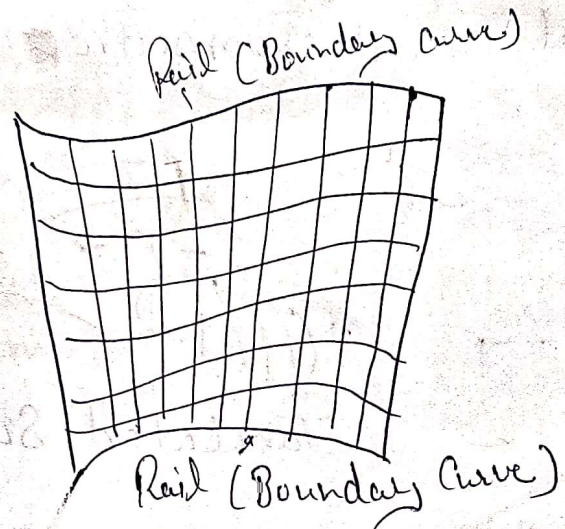 Rail (Boundary Curve)
Rail (Boundary Curve)